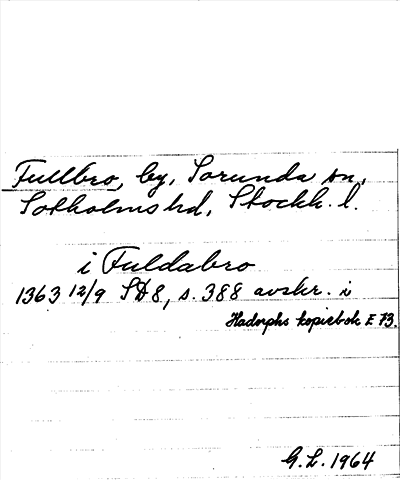 Fullbro, by, Sorunda sn,
Sotholms hd, Stockh. l.
i Fuldabro
1363 12/9 SD8, s. 388 avskr. i
Hadorphs kopiebok E 73.
G. L. 1964